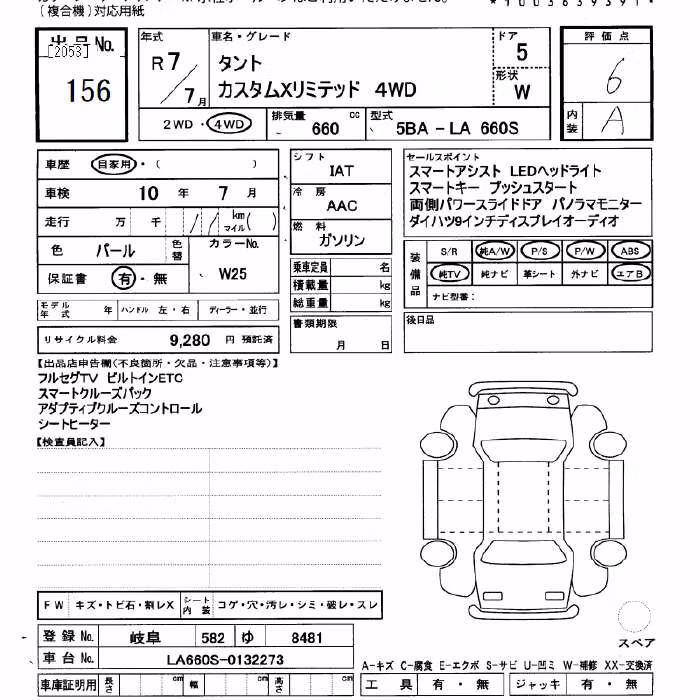 (複合機)対応用紙
出品No.
[2053]
156
年式
R7/7月
車名・グレード
タント
カスタムXリミテッド 4WD
ドア
5
形状
W
評価点
6
内装
A
2WD・4WD
排気量
660 cc
型式
5BA - LA 660S
車歴
自家用・( )
車検
10 年 7 月
走行
万 千 km マイル ( )
色
パール
色替
カラーNo.
W25
保証書
有・無
モデル年式
年
ハンドル 左・右
ディーラー・並行
リサイクル料金
9,280 円 預託済
シフト
IAT
冷房
AAC
燃料
ガソリン
乗車定員 名
積載量 kg
総重量 kg
書類期限
月 日
セールスポイント
スマートアシスト LEDヘッドライト
スマートキー プッシュスタート
両側パワースライドドア パノラマモニター
ダイハツ9インチディスプレイオーディオ
装備品
S/R 純A/W P/S P/W ABS
純TV 純ナビ 革シート 外ナビ エアB
ナビ型番:
後日品
【出品店申告欄(不良箇所・欠品・注意事項等)】
フルセグTV ビルトインETC
スマートクルーズパック
アダプティブクルーズコントロール
シートヒーター
【検査員記入】
FW キズ・トビ石・割レX
シート内装
コゲ・穴・汚レ・シミ・破レ・スレ
登録No. 岐阜 582 ゆ 8481
車台No. LA660S-0132273
車庫証明用 長さ cm 幅 cm 高さ cm
スペア
A-キズ C-腐食 E-エクボ S-サビ U-凹ミ W-補修 XX-交換済
工具 有・無 ジャッキ 有・無